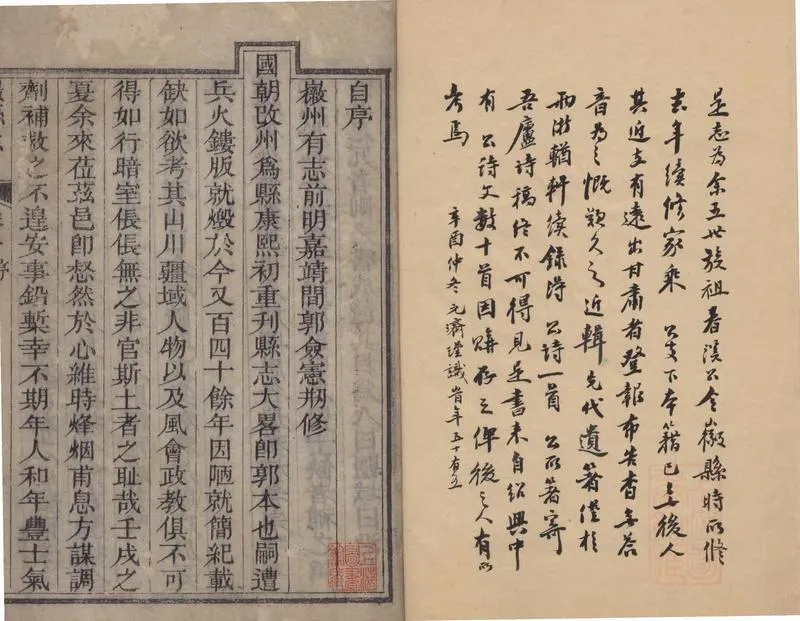 是志為余五世族祖春溪公令徽縣時所修
去年續修家乘 公支下本籍已無後人
其近支有遠出甘肅者登報布告杳無荅
音為之慨歎久之近輯先代遺著僅於
兩浙輶軒續錄得 公詩一首 公所著寄
吾廬詩稿終不可得見是書來自紹興中
有 公詩文數十首因購存之俾後之人有所
考焉
辛酉仲冬 元濟謹識 峕年五十有五
自序
徽州有志前明嘉靖間郭僉憲刱修
國朝改州爲縣康熙初重刊縣志大畧卽郭本也嗣遭
兵火鏤版就燬於今又百四十餘年因陋就簡紀載
缺如欲考其山川疆域人物以及風會政教俱不可
得如行暗室倀倀無之非官斯土者之耻哉壬戌之
夏余來莅茲邑卽惄然於心維時烽烟甫息方謀調
劑補救之不遑安事鉛槧幸不期年人和年豐士氣